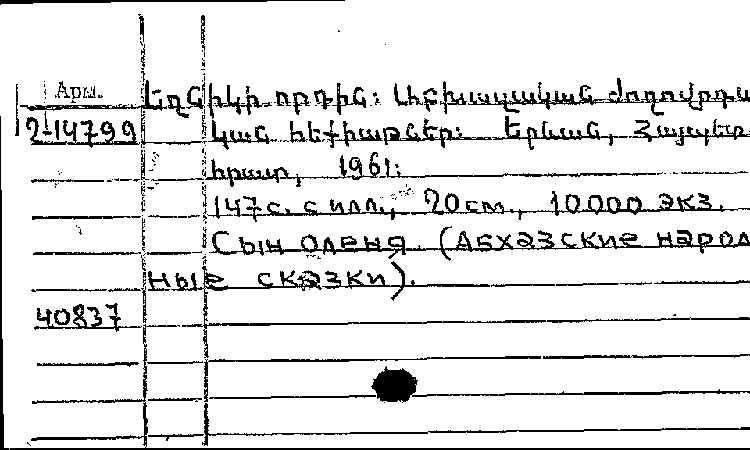 Арм.
Եղնիկի որդին: Աբխազական ժողովրդա
2-14799
կան հեքիաթներ: Երևան, Հայպետ
հրատ, 1961:
147 с. с илл., 20 см., 10000 экз.
Сын оленя (Абхазские народ
ные сказки).
40837